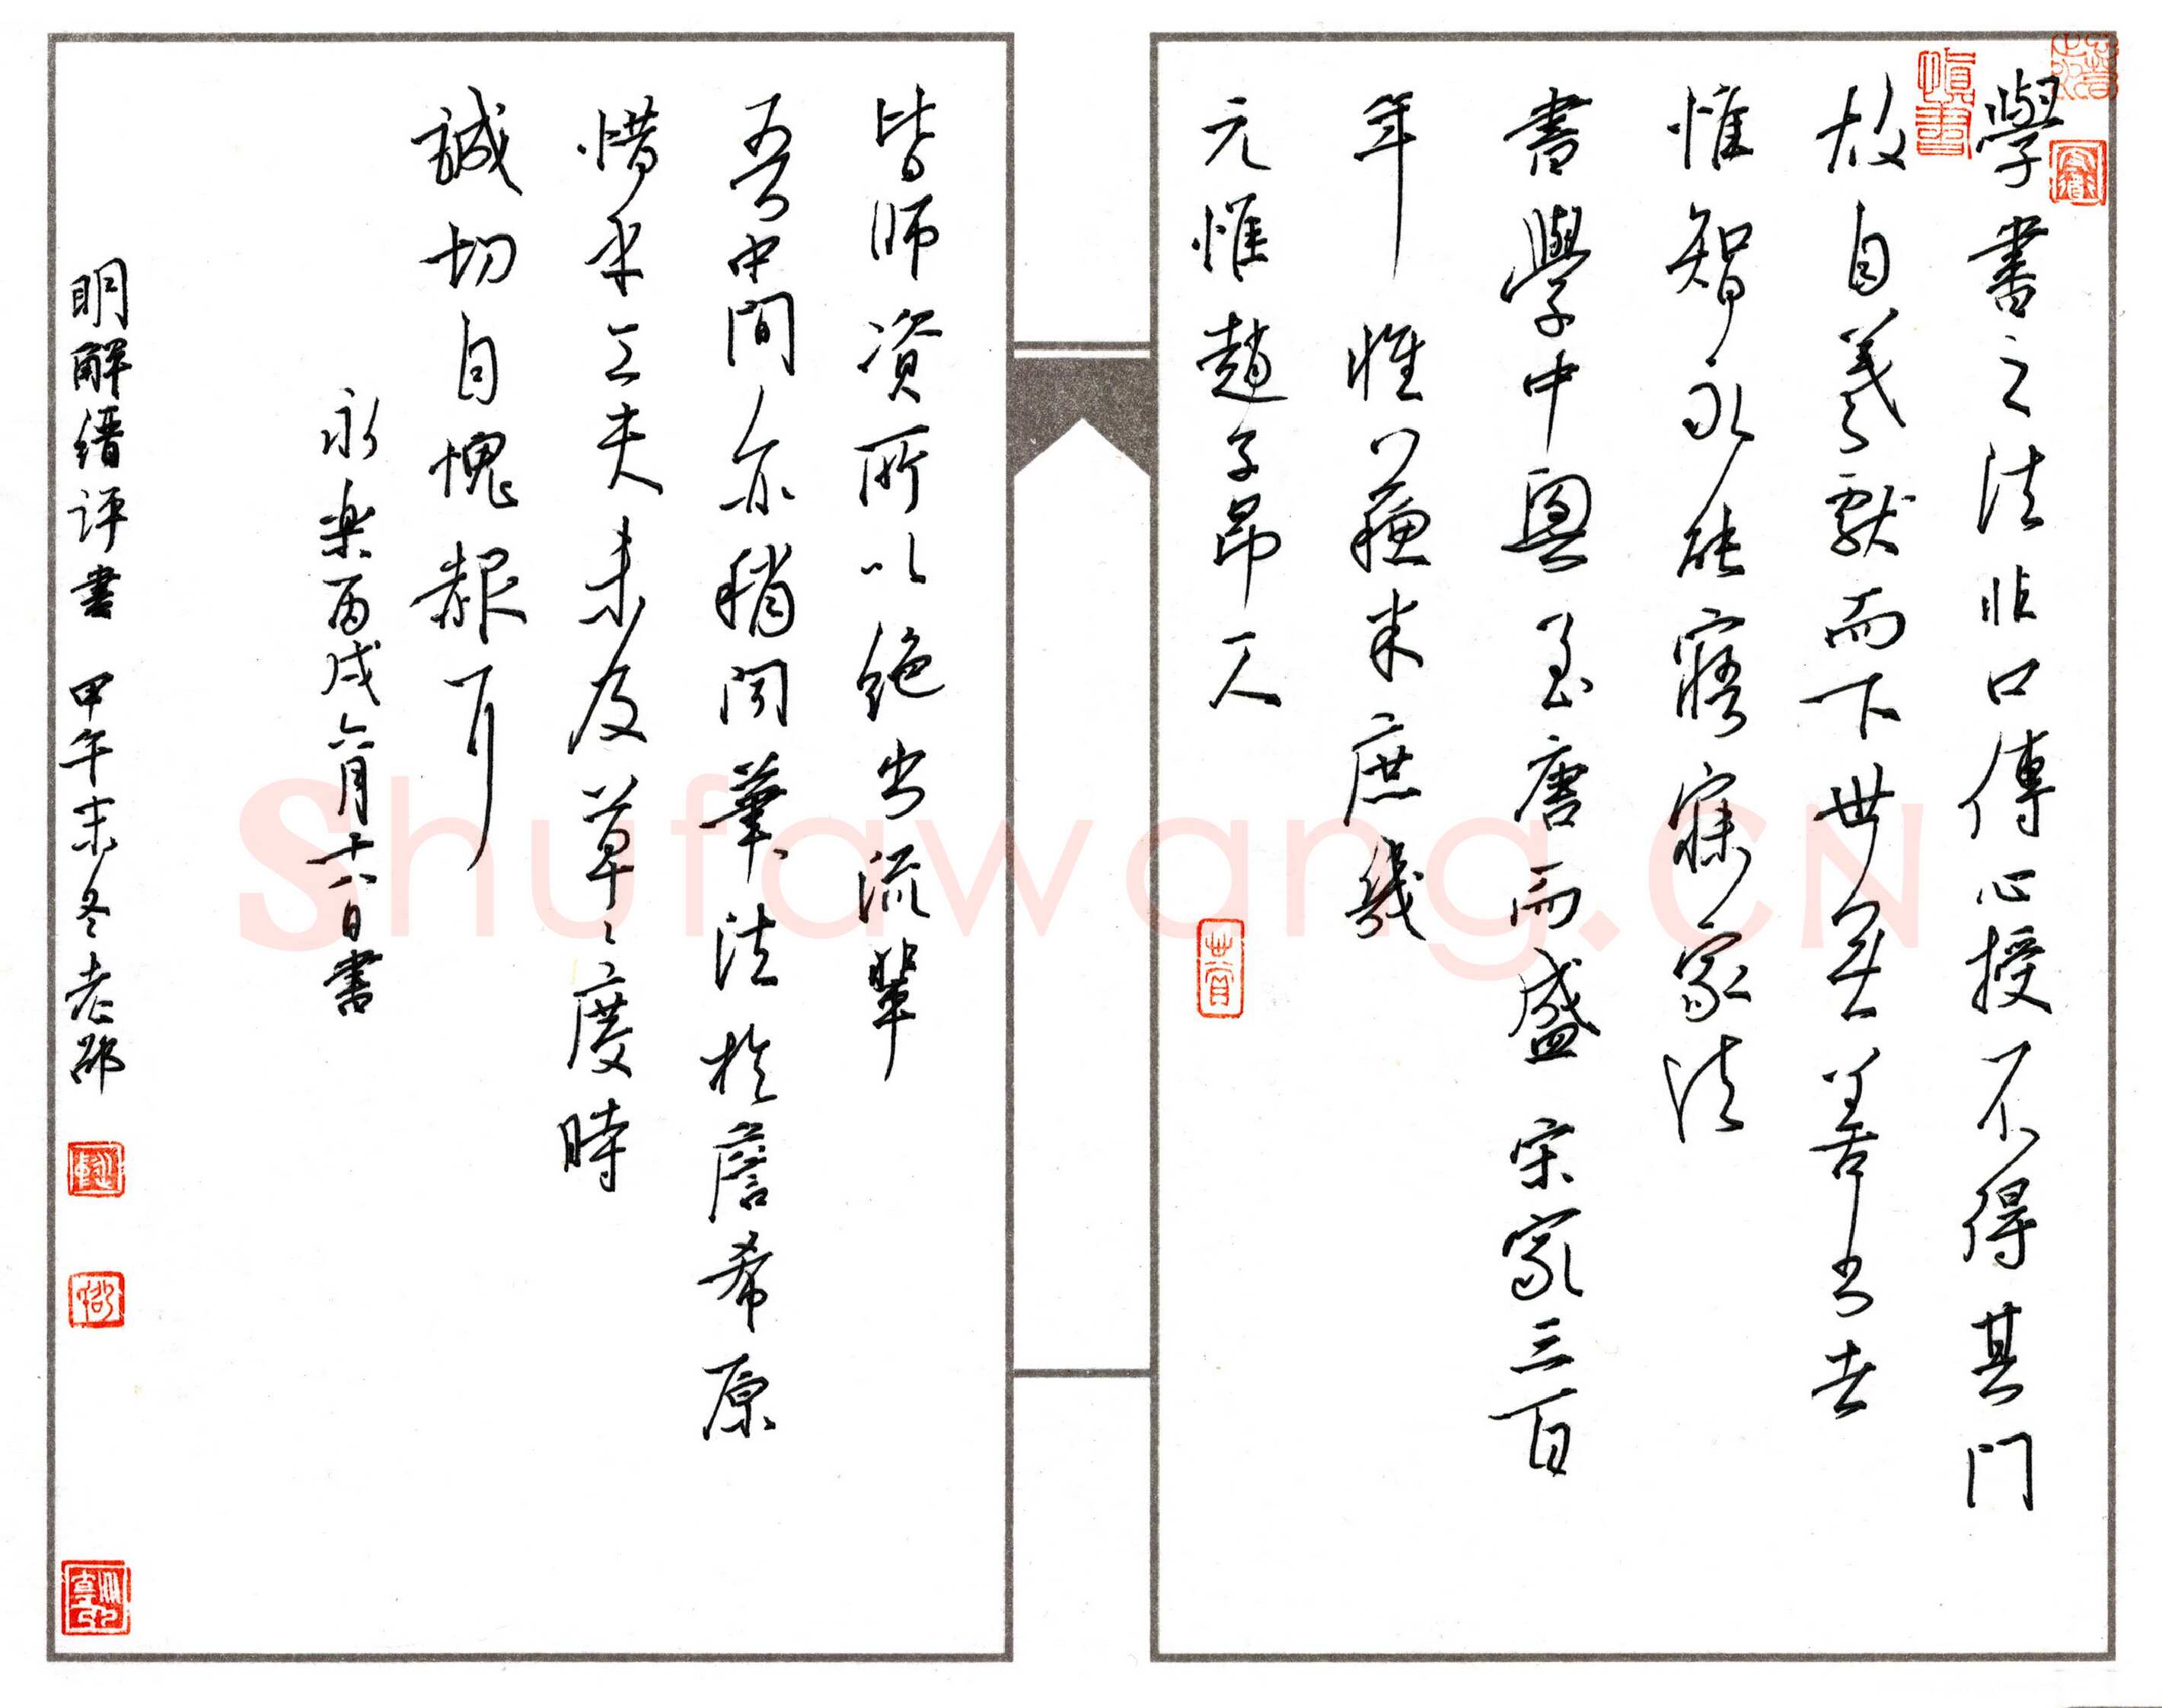 學書之法非口傳心授不得其門
故自羲獻而下世無善書者
惟智永能寤寐家法
書學中興至唐而盛宋家三百
年惟蘇米庶幾
元惟趙子昂一人
皆師資所以絕出流輩
吾中間亦稍聞筆法於詹希原
惜乎工夫未及草〻度時
誠切自愧赧耳
永楽丙戌六月十八日書
明解縉評書 甲午末冬老邵
慎書
Shufawang.CN